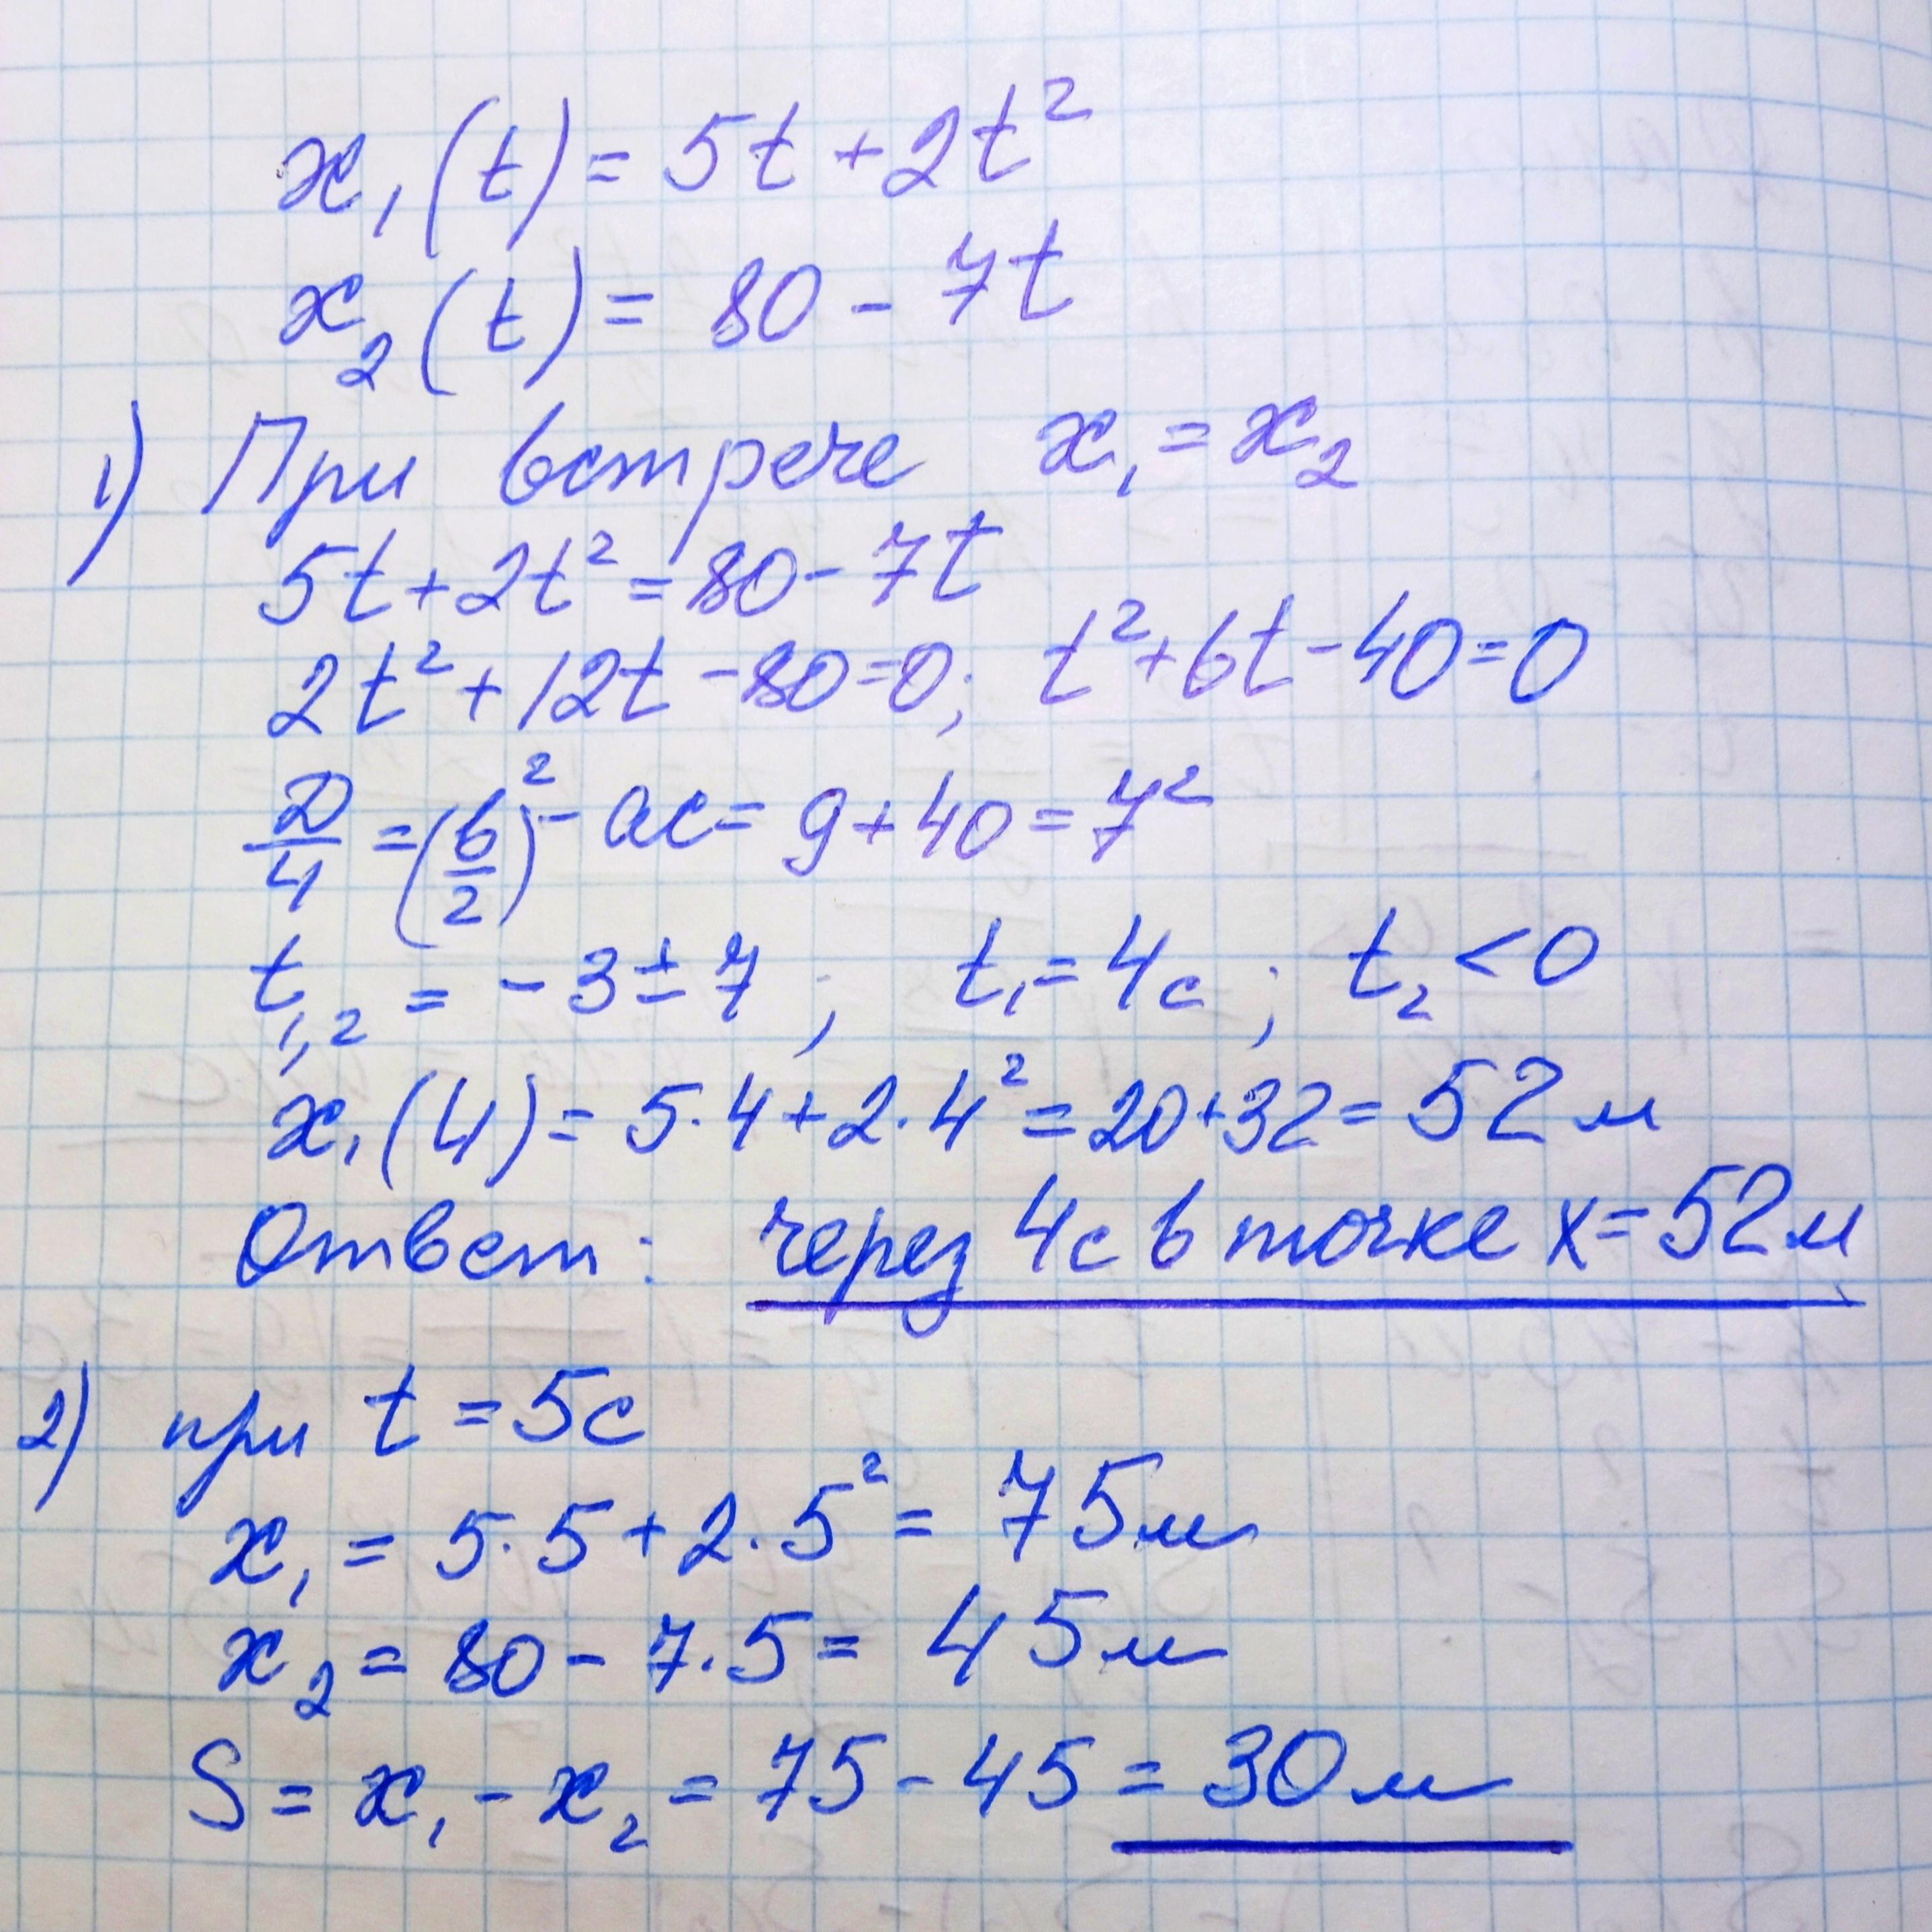 x₁(t) = 5t + 2t²
x₂(t) = 80 - 7t
1) При встрече x₁ = x₂
5t + 2t² = 80 - 7t
2t² + 12t - 80 = 0; t² + 6t - 40 = 0
D/4 = (b/2)² - ac = 9 + 40 = 7²
t₁,₂ = -3 ± 7; t₁ = 4с; t₂ < 0
x₁(4) = 5·4 + 2·4² = 20 + 32 = 52м
Ответ: через 4с в точке x = 52м
2) при t = 5с
x₁ = 5·5 + 2·5² = 75м
x₂ = 80 - 7·5 = 45м
S = x₁ - x₂ = 75 - 45 = 30м